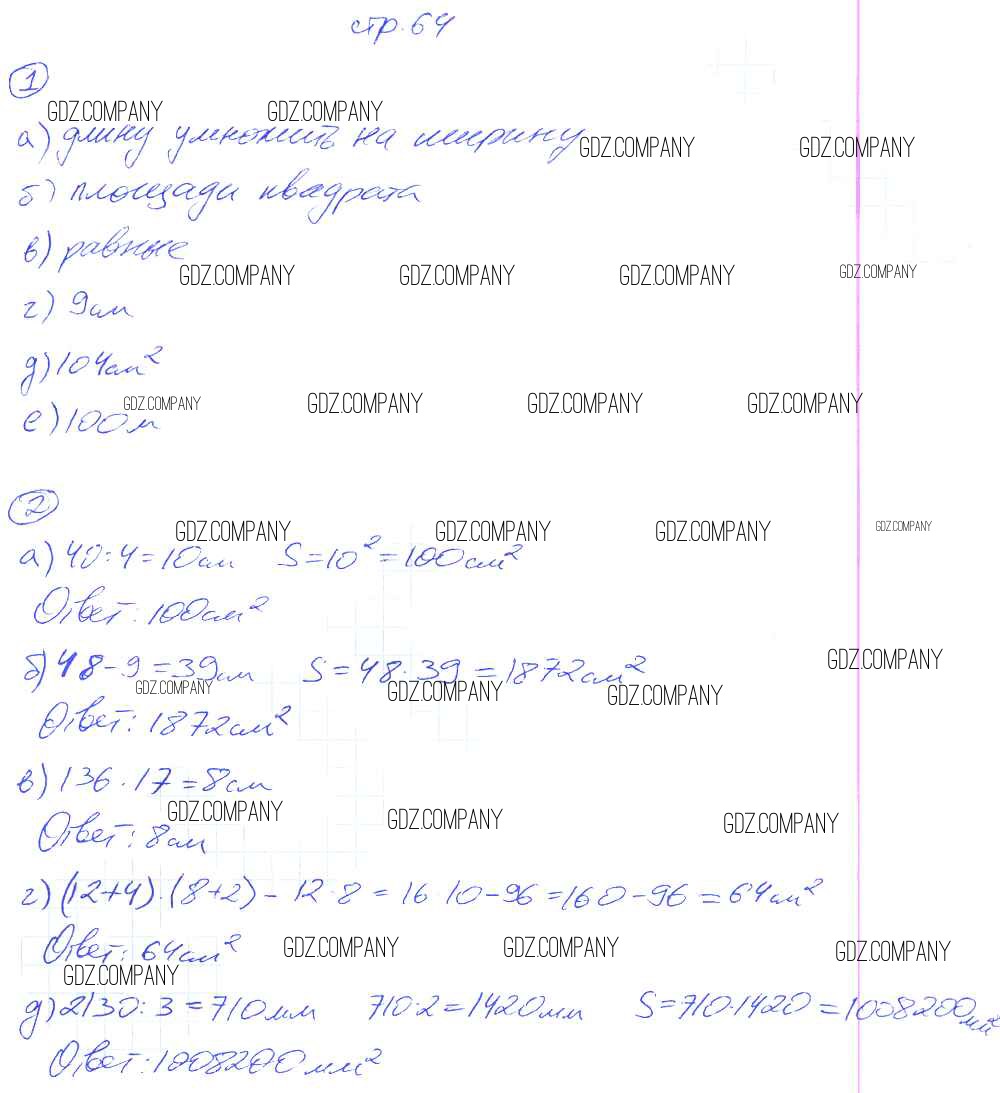 стр. 64
1
GDZ.COMPANY GDZ.COMPANY
а) длину умножить на ширину
GDZ.COMPANY GDZ.COMPANY
б) площади квадрата
в) равные
GDZ.COMPANY GDZ.COMPANY GDZ.COMPANY GDZ.COMPANY
г) 9см
д) 104см²
GDZ.COMPANY GDZ.COMPANY GDZ.COMPANY GDZ.COMPANY
е) 100м
2
GDZ.COMPANY GDZ.COMPANY GDZ.COMPANY GDZ.COMPANY
а) 40:4=10см S=10²=100см²
Ответ: 100см²
б) 48-9=39см S=48·39=1872см²
GDZ.COMPANY
GDZ.COMPANY GDZ.COMPANY GDZ.COMPANY
Ответ: 1872см²
в) 136·17=8см
GDZ.COMPANY GDZ.COMPANY GDZ.COMPANY
Ответ: 8см
г) (12+4)·(8+2)-12·8=16·10-96=160-96=64см²
Ответ: 64см²
GDZ.COMPANY GDZ.COMPANY GDZ.COMPANY
GDZ.COMPANY
д) 2130:3=710мм 710·2=1420мм S=710·1420=1008200мм²
Ответ: 1008200мм²